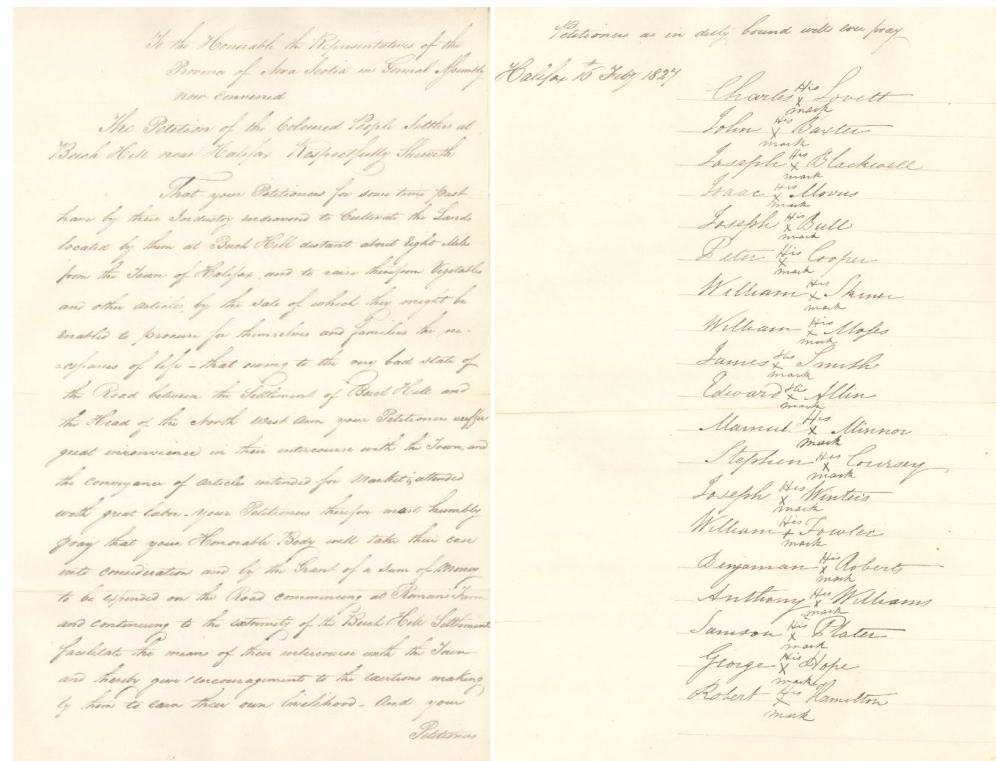 To the Honorable the Representatives of the
Province of Nova Scotia in General Assembly
now convened
The Petition of the Coloured People Settlers at
Beech Hill near Halifax Respectfully Sheweth
That your Petitioners for some time past
have by their Industry endeavored to Cultivate the Lands
located by them at Beech Hill distant about Eight Miles
from the Town of Halifax, and to raise therefrom Vegetables
and other articles, by the sale of which they might be
enabled to procure for themselves and families the ne-
=cessaries of life – that owing to the very bad state of
the Road between the Settlement of Beech Hill and
the Head of the North West Arm your Petitioners suffer
great inconvenience in their intercourse with the Town, and
the conveyance of articles intended for Market is attended
with great labor – your Petitioners therefore most humbly
pray that your Honorable Body will take their case
into consideration and by the Grant of a Sum of Money
to be expended on the Road commencing at Romans Farm
and continuing to the extremity of the Beech Hill Settlement
facilitate the means of their intercourse with the Town
and thereby give encouragement to the exertions making
by them to earn their own livelihood – And your
Petitioners
Petitioners as in duty bound will ever pray
Halifax 15th Feby 1827
Charles His X mark Lovett
John His X mark Baxter
Joseph His X mark Blackwell
Isaac His X mark Movus
Joseph His X mark Bull
Peter His X mark Cooper
William His X mark Skiner
William His X mark Moses
James His X mark Smith
Edward His X mark Allin
Mamuel His X mark Minnor
Stephen His X mark Coursey
Joseph His X mark Winters
William His X mark Fowler
Benjaman His X mark Roberts
Anthony His X mark Williams
Samson His X mark Plater
George His X mark Hope
Robert His X mark Hamilton